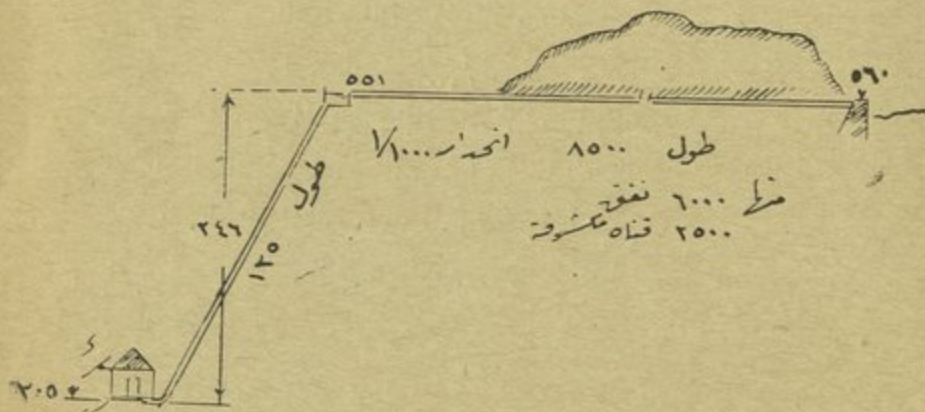 ٥٥١
٥٦٠
طول ٨٥٠٠ انحدار ١/١٠٠٠
منها ٦٠٠٠ نفق
٢٥٠٠ قناة مكشوفة
طول
٣٤٦
٢٠٥